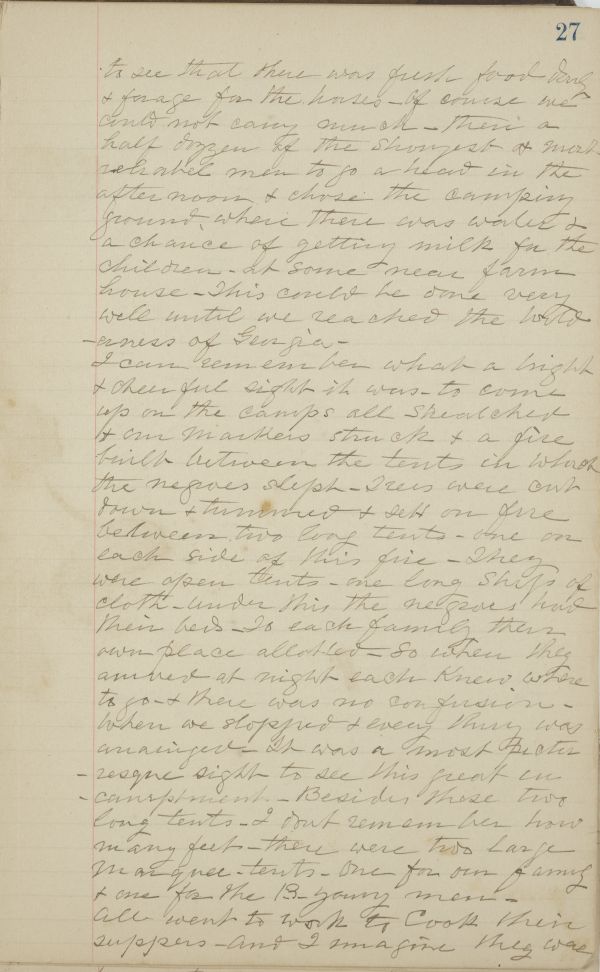 27
to see that there was fresh food daily
& forage for the horses - Of course we
could not carry much - then a
half dozzen of the strongest & most
reliabel men to go a head in the
afternoon & chose the camping
ground where there was water &
a chance of getting milk for the
children - at some near farm
house - This could be done very
well until we reached the wild
-erness of Georgia -
I can remember what a bright
& cheerful sight it was - to come
up on the camps all streatched
& our markers struck & a fire
built between the tents in which
the negroes slept - Trees were cut
down & trimmed & set on fire
between two long tents - one on
each side of this fire - They
were open tents - one long strips of
cloth - under this the negroes had
their beds - To each family their
own place allotted - So when they
arrived at night each knew where
to go - & there was no confusion -
When we stopped & every thing was
arrainged - It was a most pictu
-resque sight to see this great en
-campment - Besides these two
long tents - I dont remember how
many feet - there were two large
Marquee - tents - One for our family
& one for the B- young men -
All went to work to Cook their
suppers - and I imagine they were